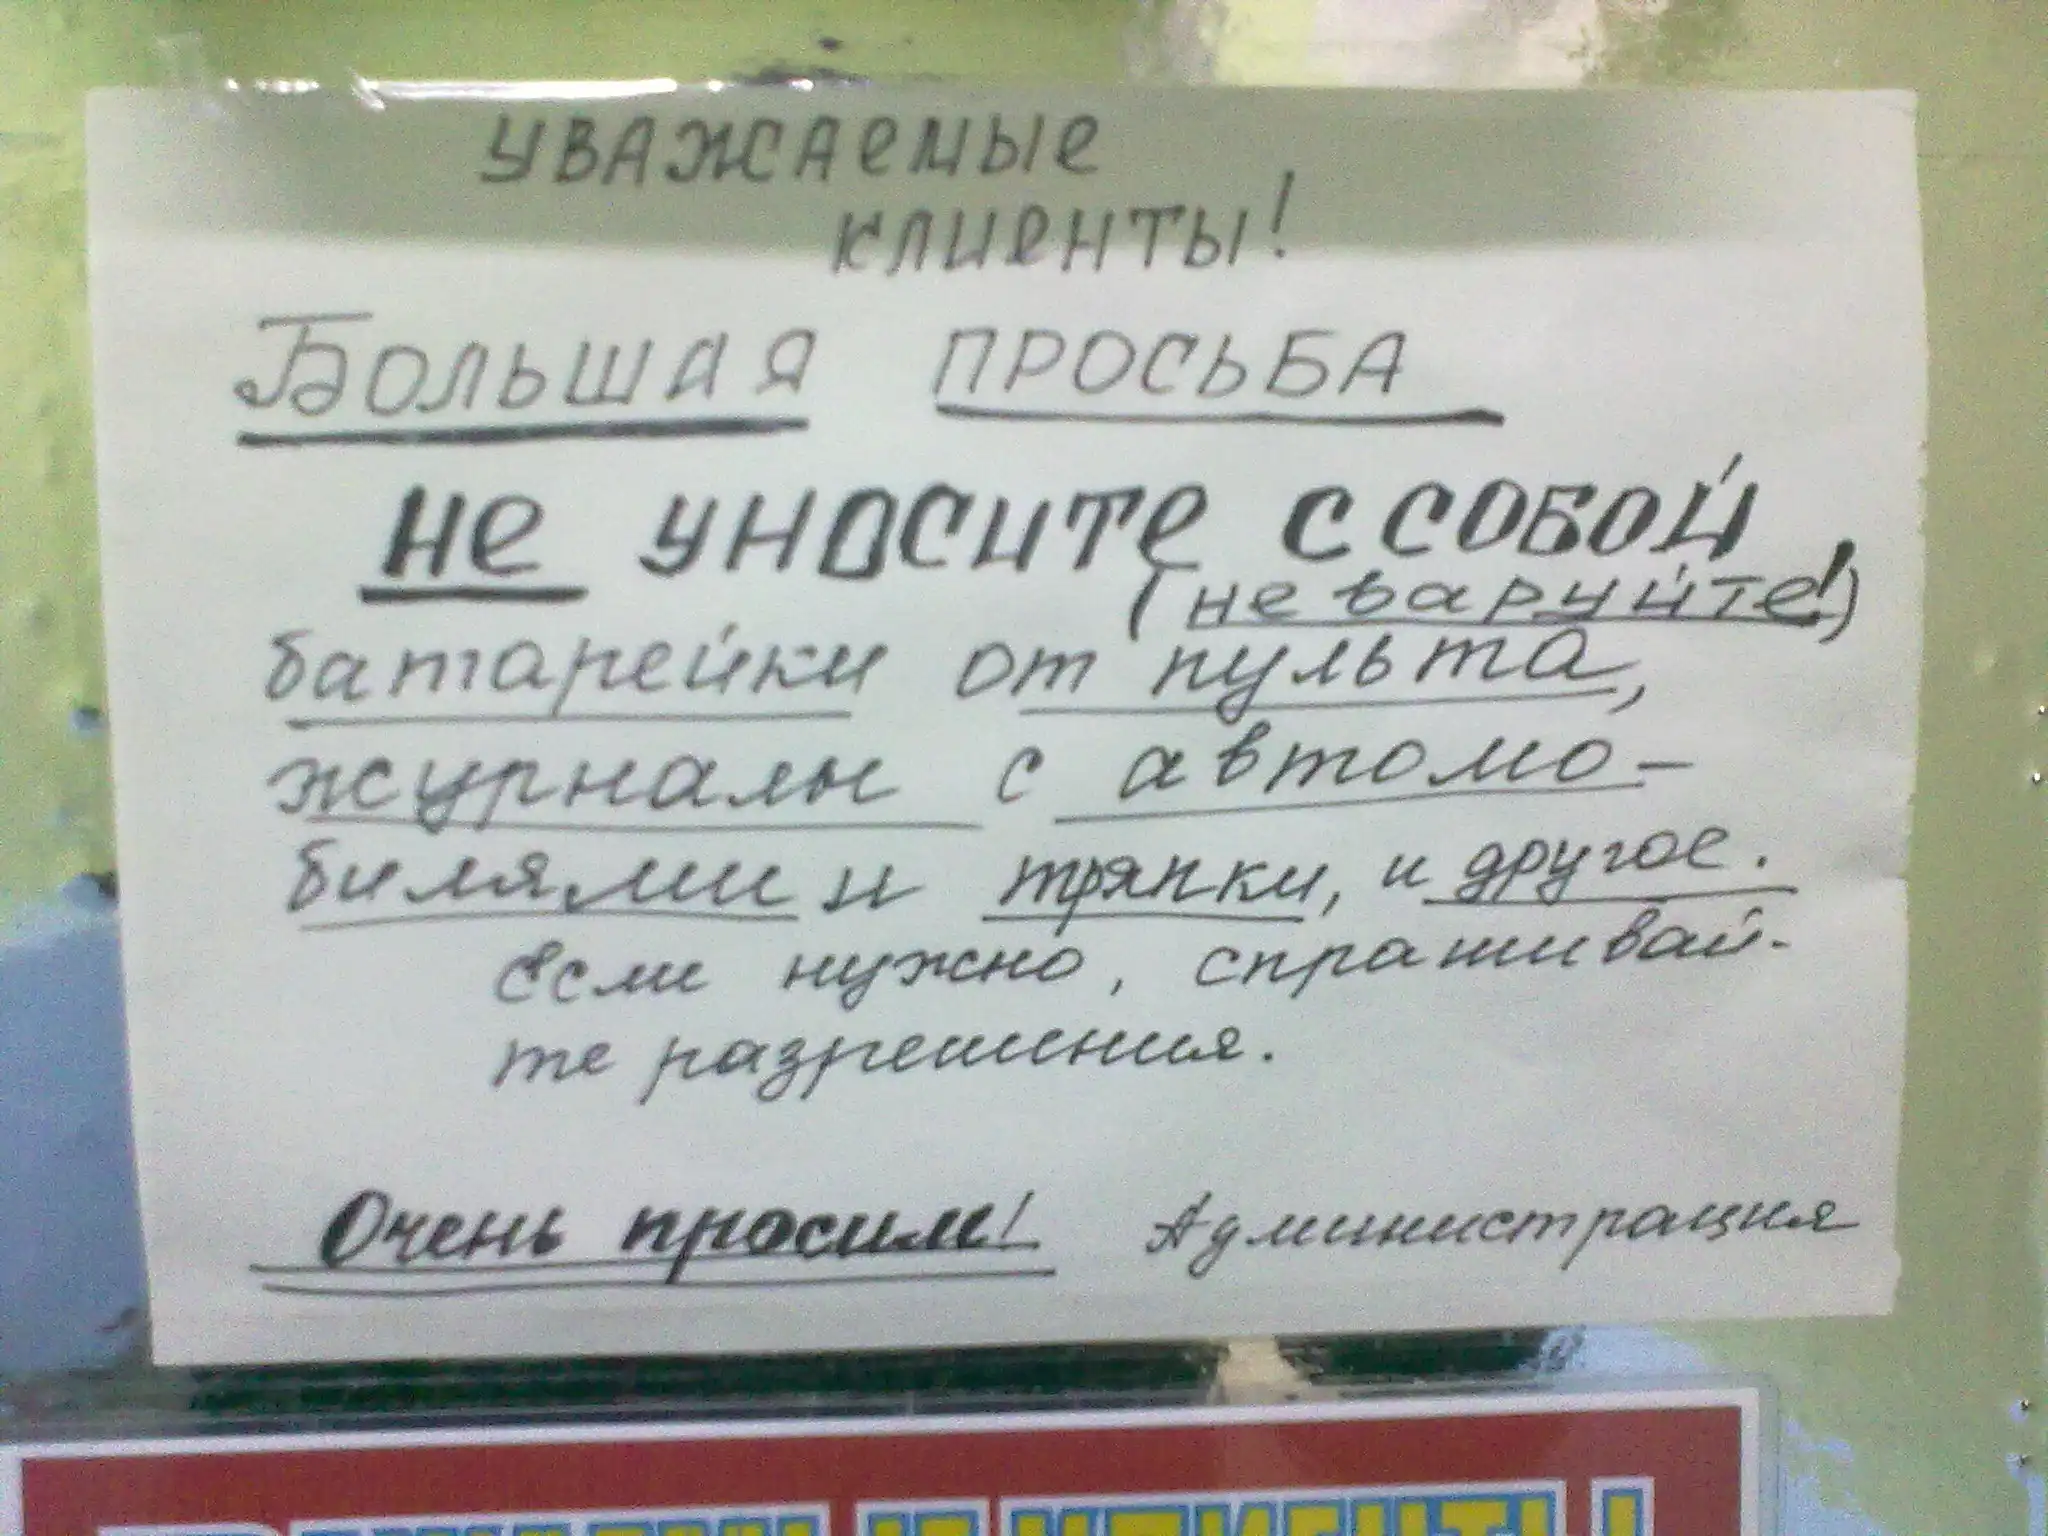 уважаемые
клиенты!
Большая просьба
не уносите с собой
(не варуйте!)
батарейки от пульта,
журналы с автомо-
билями и тряпки, и другое.
если нужно, спрашивай-
те разрешения.
Очень просим! Администрация
КЛИЕНТЫ